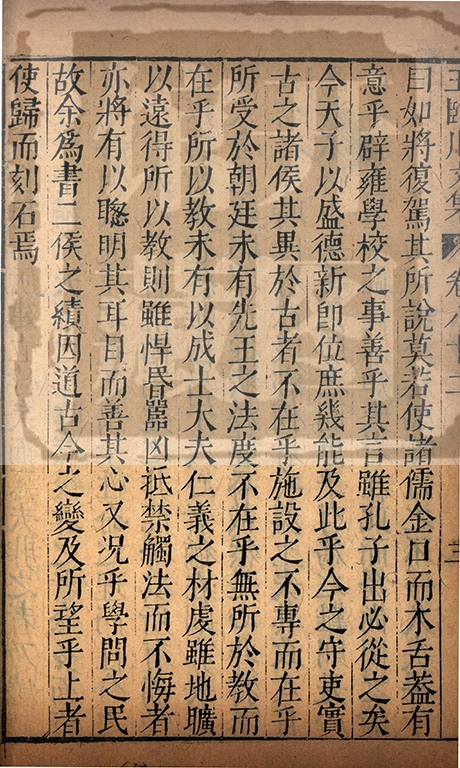 王臨川文集 卷八十二 三
曰如將復駕其所說莫若使諸儒金口而木舌葢有
意乎辟雍學校之事善乎其言雖孔子出必從之矣
今天子以盛德新卽位庶幾能及此乎今之守吏實
古之諸侯其異於古者不在乎施設之不專而在乎
所受於朝廷未有先王之法度不在乎無所於教而
在乎所以教未有以成士大夫仁義之材虔雖地曠
以遠得所以教則雖悍昬嚚凶抵禁觸法而不悔者
亦將有以聰明其耳目而善其心又况乎學問之民
故余爲書二侯之績因道古今之變及所望乎上者
使歸而刻石焉